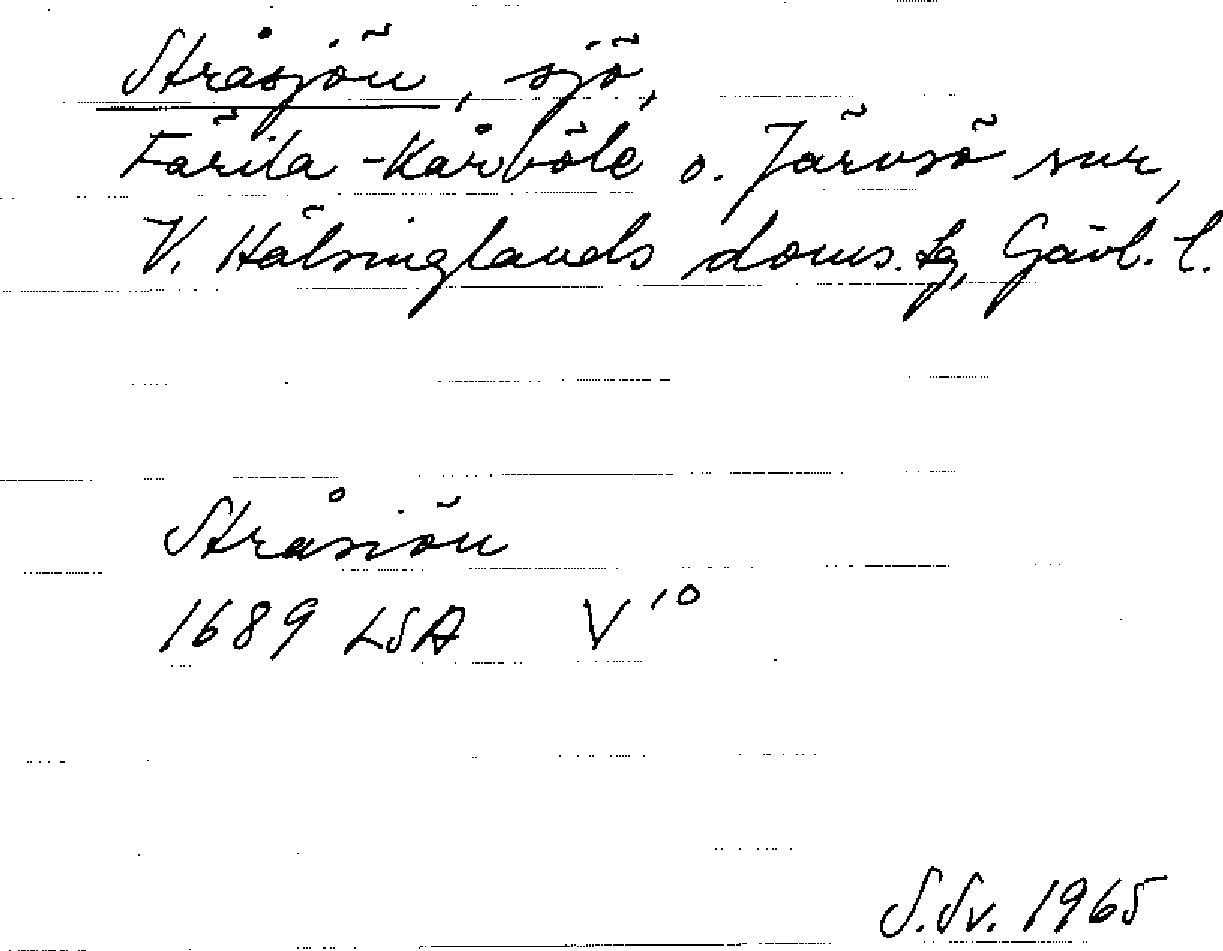 Stråsjön, sjö,
Färila-Kårböle o. Järvsö snr,
V. Hälsinglands doms.tg, Gävl. l.
Stråsiön
1689 LSA V¹⁰
S.Sv. 1965